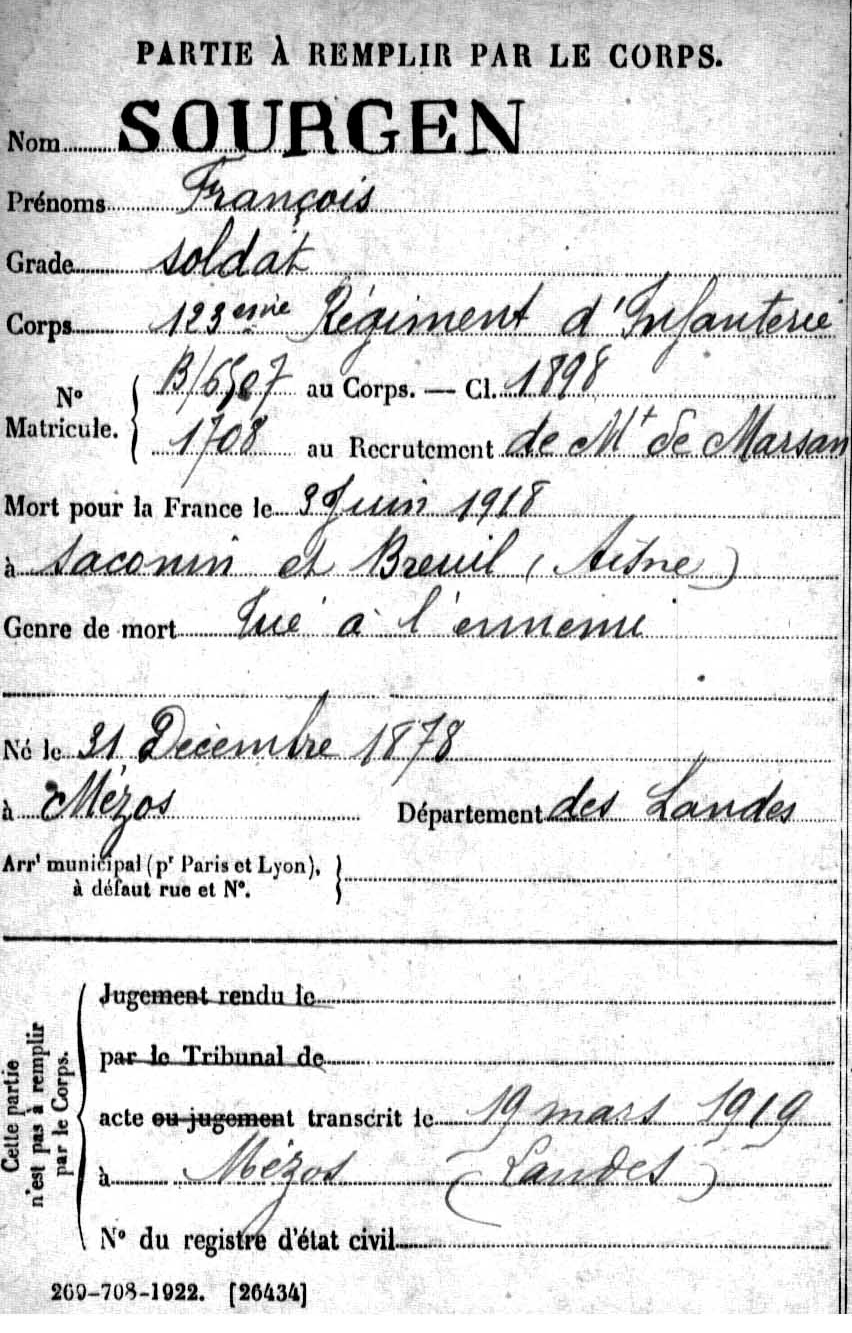 PARTIE À REMPLIR PAR LE CORPS.
Nom SOURGEN
Prénoms François
Grade soldat
Corps 123eme Régiment d'Infanterie
No Matricule. B/6507 au Corps. — Cl. 1898
1708 au Recrutement de Mt de Marsan
Mort pour la France le 3 Juin 1918
à Saconin et Breuil (Aisne)
Genre de mort tué à l'ennemi
Né le 31 Décembre 1878
à Mézos Département des Landes
Arrt municipal (pr Paris et Lyon),
à défaut rue et No.
Cette partie
n'est pas à remplir
par le Corps.
Jugement rendu le
par le Tribunal de
acte ou jugement transcrit le 19 mars 1919
à Mézos (Landes)
No du registre d'état civil
269-708-1922. [26434]